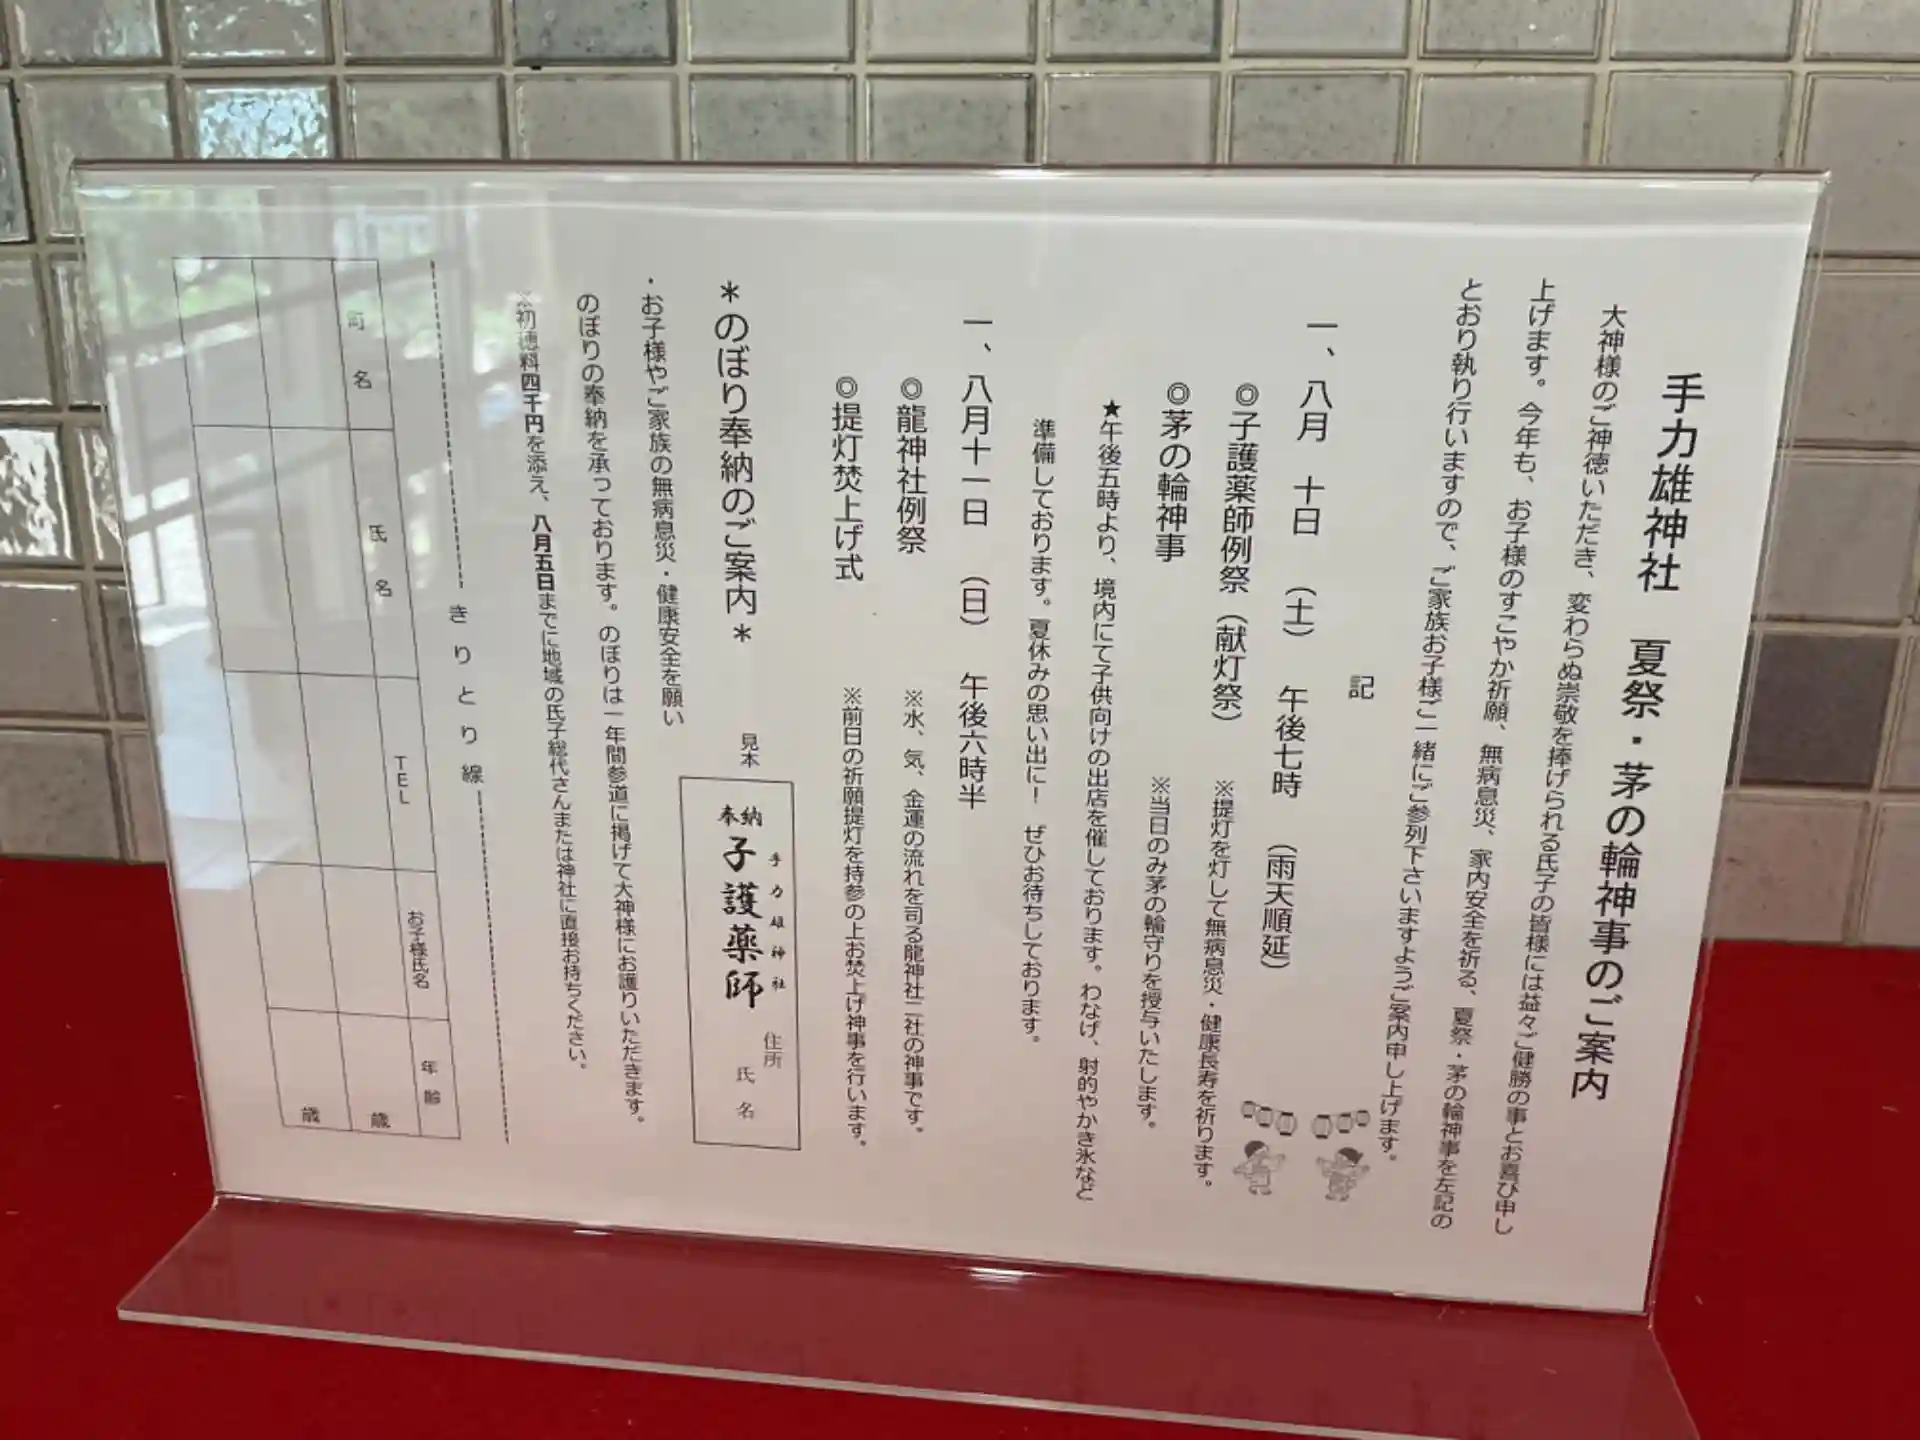 手力雄神社　夏祭・茅の輪神事のご案内
大神様のご神徳いただき、変わらぬ崇敬を捧げられる氏子の皆様には益々ご健勝の事とお喜び申し
上げます。今年も、お子様のすこやか祈願、無病息災、家内安全を祈る、夏祭・茅の輪神事を左記の
とおり執り行いますので、ご家族お子様ご一緒にご参列下さいますようご案内申し上げます。
記
一、八月　十日　（土）　午後七時　（雨天順延）
◎子護薬師例祭（献灯祭）　※提灯を灯して無病息災・健康長寿を祈ります。
◎茅の輪神事　※当日のみ茅の輪守りを授与いたします。
★午後五時より、境内にて子供向けの出店を催しております。わなげ、射的やかき氷など
準備しております。夏休みの思い出に！　ぜひお待ちしております。
一、八月十一日　（日）　午後六時半
◎龍神社例祭　※水、気、金運の流れを司る龍神社二社の神事です。
◎提灯焚上げ式　※前日の祈願提灯を持参の上お焚上げ神事を行います。
＊のぼり奉納のご案内＊
見本
手力雄神社　住所
奉納　子護薬師　氏名
・お子様やご家族の無病息災・健康安全を願い
のぼりの奉納を承っております。のぼりは一年間参道に掲げて大神様にお護りいただきます。
※初穂料四千円を添え、八月五日までに地域の氏子総代さんまたは神社に直接お持ちください。
きりとり線
町名　氏名　TEL　お子様氏名　年齢
歳
歳